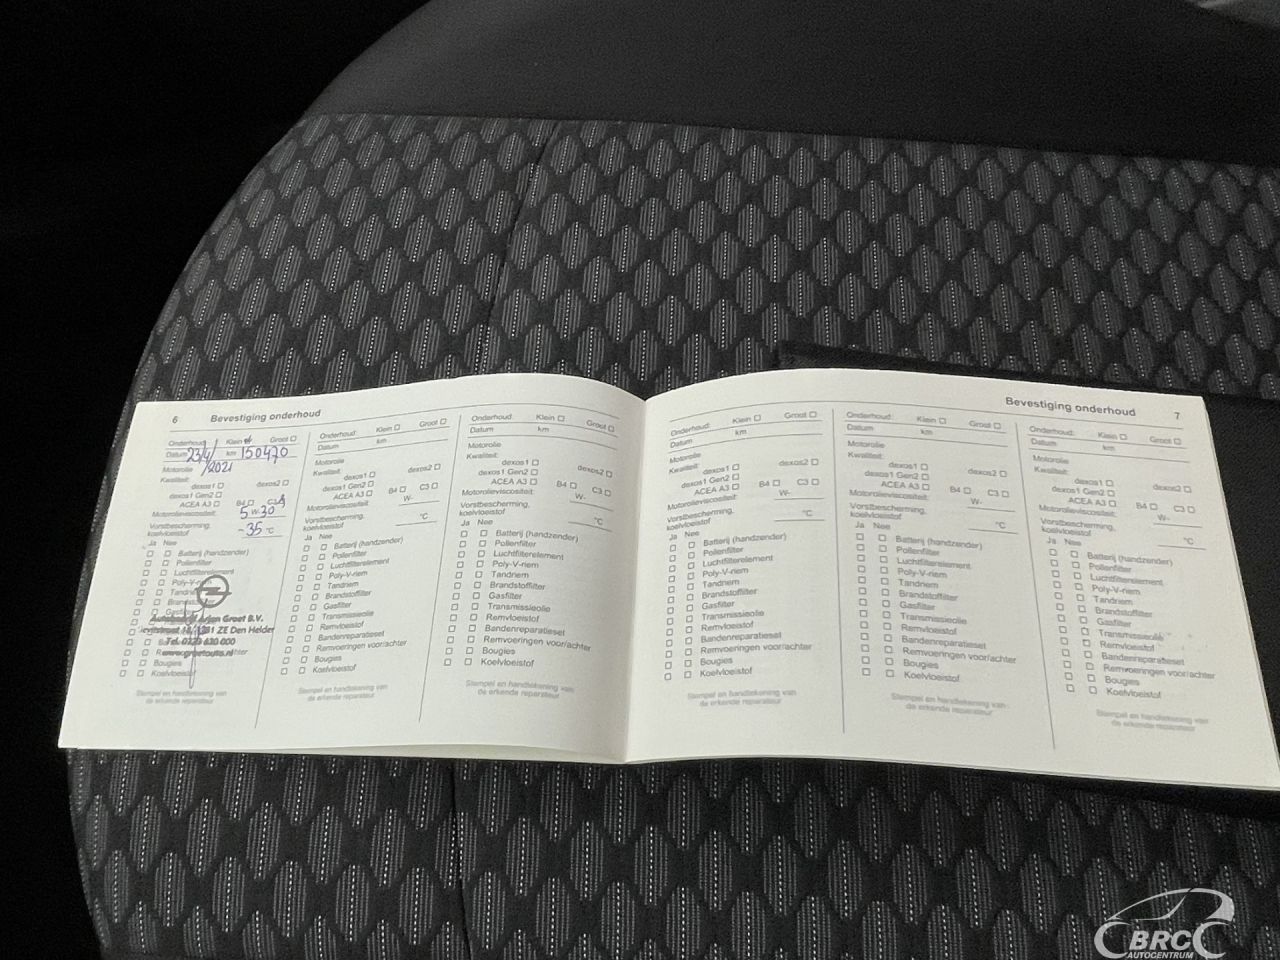 6 Bevestiging onderhoud
Onderhoud: Klein Groot
Datum 23/4/2021 km 150470
Motorolie
Kwaliteit:
dexos1 dexos2
dexos1 Gen2
ACEA A3 B4 C3
Motorolieviscositeit: 5 W- 30
Vorstbescherming, koelvloeistof -35 °C
Ja Nee
Batterij (handzender)
Pollenfilter
Luchtfilterelement
Poly-V-riem
Autobedrijf Arjan Groot B.V.
ZE Den Helder
Tel. 0223 630 000
www.grootauto.nl
Bougies
Koelvloeistof
Stempel en handtekening van
de erkende reparateur
Onderhoud: Klein Groot
Datum km
Motorolie
Kwaliteit:
dexos1 dexos2
dexos1 Gen2
ACEA A3 B4 C3
Motorolieviscositeit: W-
Vorstbescherming, koelvloeistof °C
Ja Nee
Batterij (handzender)
Pollenfilter
Luchtfilterelement
Poly-V-riem
Tandriem
Brandstoffilter
Gasfilter
Transmissieolie
Remvloeistof
Bandenreparatieset
Remvoeringen voor/achter
Bougies
Koelvloeistof
Stempel en handtekening van
de erkende reparateur
Onderhoud: Klein Groot
Datum km
Motorolie
Kwaliteit:
dexos1 dexos2
dexos1 Gen2
ACEA A3 B4 C3
Motorolieviscositeit: W-
Vorstbescherming, koelvloeistof °C
Ja Nee
Batterij (handzender)
Pollenfilter
Luchtfilterelement
Poly-V-riem
Tandriem
Brandstoffilter
Gasfilter
Transmissieolie
Remvloeistof
Bandenreparatieset
Remvoeringen voor/achter
Bougies
Koelvloeistof
Stempel en handtekening van
de erkende reparateur
Bevestiging onderhoud 7
Onderhoud: Klein Groot
Datum km
Motorolie
Kwaliteit:
dexos1 dexos2
dexos1 Gen2
ACEA A3 B4 C3
Motorolieviscositeit: W-
Vorstbescherming, koelvloeistof °C
Ja Nee
Batterij (handzender)
Pollenfilter
Luchtfilterelement
Poly-V-riem
Tandriem
Brandstoffilter
Gasfilter
Transmissieolie
Remvloeistof
Bandenreparatieset
Remvoeringen voor/achter
Bougies
Koelvloeistof
Stempel en handtekening van
de erkende reparateur
Onderhoud: Klein Groot
Datum km
Motorolie
Kwaliteit:
dexos1 dexos2
dexos1 Gen2
ACEA A3 B4 C3
Motorolieviscositeit: W-
Vorstbescherming, koelvloeistof °C
Ja Nee
Batterij (handzender)
Pollenfilter
Luchtfilterelement
Poly-V-riem
Tandriem
Brandstoffilter
Gasfilter
Transmissieolie
Remvloeistof
Bandenreparatieset
Remvoeringen voor/achter
Bougies
Koelvloeistof
Stempel en handtekening van
de erkende reparateur
Onderhoud: Klein Groot
Datum km
Motorolie
Kwaliteit:
dexos1 dexos2
dexos1 Gen2
ACEA A3 B4 C3
Motorolieviscositeit: W-
Vorstbescherming, koelvloeistof °C
Ja Nee
Batterij (handzender)
Pollenfilter
Luchtfilterelement
Poly-V-riem
Tandriem
Brandstoffilter
Gasfilter
Transmissieolie
Remvloeistof
Bandenreparatieset
Remvoeringen voor/achter
Bougies
Koelvloeistof
Stempel en handtekening van
de erkende reparateur
BRC
AUTOCENTRUM